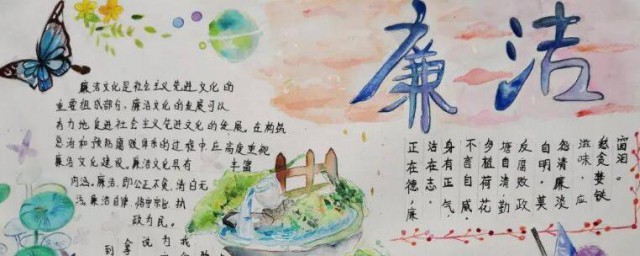 廉洁
廉洁文化是社会主义先进文化的
重要组成部分,廉洁文化的发展可以
有力地促进社会主义先进文化的发展。在构筑
惩治和预防腐败体系的过程中应高度重视
廉洁文化建设。廉洁文化具有 丰富
内涵。廉洁,即公正不贪,清白无
污。廉洁自律,
政为民。
到 说 为 我
留泪。
愁贪婪铁
滋味,应
怨清廉淡
自明。莫
反腐败政
塘自清勤
乡植荷花
不言自威,
身有正气
洁在志。
正在德,廉